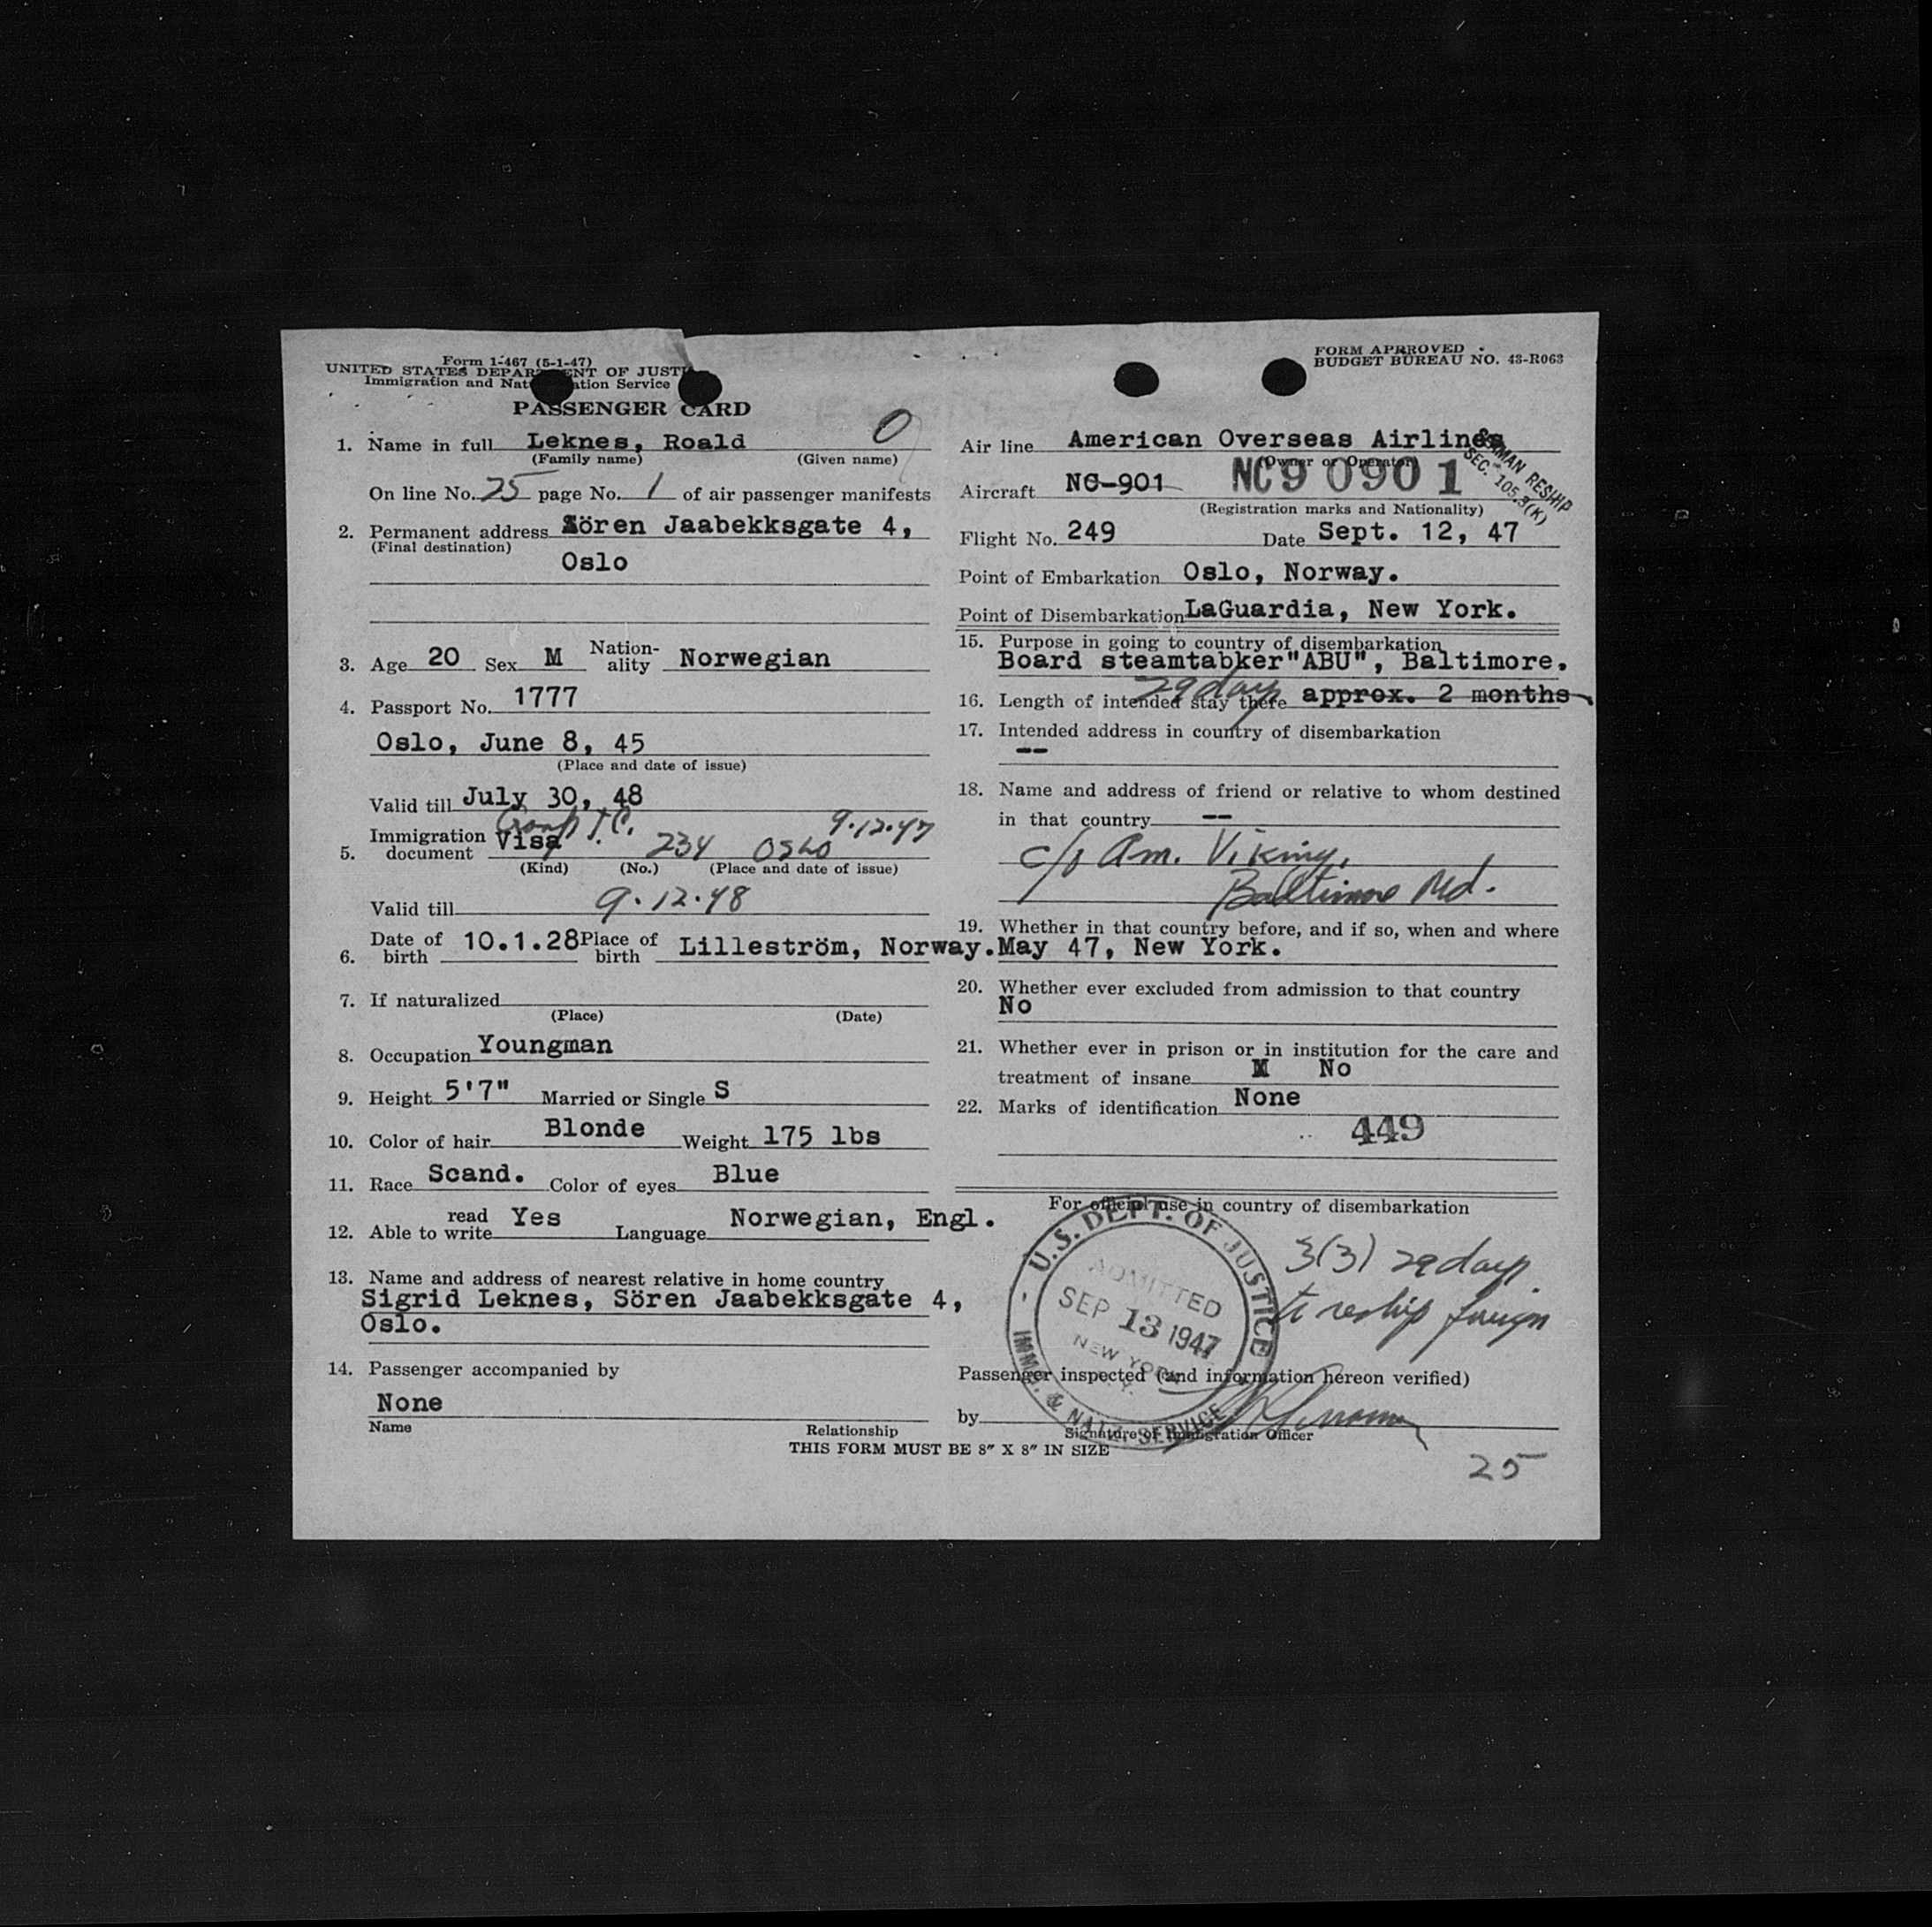 Form I-467 (5-1-47)
UNITED STATES DEPARTMENT OF JUSTICE
Immigration and Naturalization Service
PASSENGER CARD
1. Name in full Leknes, Roald 0
(Family name) (Given name)
On line No. 25 page No. 1 of air passenger manifests
2. Permanent address Sören Jaabekksgate 4,
(Final destination)
Oslo
3. Age 20 Sex M Nation-ality Norwegian
4. Passport No. 1777
Oslo, June 8, 45
(Place and date of issue)
Valid till July 30, 48
5. Immigration document Visa 234 OSLO 9.12.47
(Kind) (No.) (Place and date of issue)
Valid till 9.12.48
6. Date of birth 10.1.28 Place of birth Lilleström, Norway.
7. If naturalized
(Place) (Date)
8. Occupation Youngman
9. Height 5'7" Married or Single S
10. Color of hair Blonde Weight 175 lbs
11. Race Scand. Color of eyes Blue
12. Able to read write Yes Language Norwegian, Engl.
13. Name and address of nearest relative in home country
Sigrid Leknes, Sören Jaabekksgate 4,
Oslo.
14. Passenger accompanied by
None
Name Relationship
THIS FORM MUST BE 8" X 8" IN SIZE
FORM APPROVED
BUDGET BUREAU NO. 43-R063
Air line American Overseas Airlines
(Owner or Operator)
SEAMAN RESHIP
SEC. 105.3(K)
Aircraft NC-901 NC90901
(Registration marks and Nationality)
Flight No. 249 Date Sept. 12, 47
Point of Embarkation Oslo, Norway.
Point of Disembarkation LaGuardia, New York.
15. Purpose in going to country of disembarkation
Board steamtabker"ABU", Baltimore.
16. Length of intended stay there 29 days approx. 2 months
17. Intended address in country of disembarkation
--
18. Name and address of friend or relative to whom destined
in that country --
c/o Am. Viking,
Baltimore Md.
19. Whether in that country before, and if so, when and where
May 47, New York.
20. Whether ever excluded from admission to that country
No
21. Whether ever in prison or in institution for the care and
treatment of insane No
22. Marks of identification None
449
For official use in country of disembarkation
U.S. DEPT. OF JUSTICE
ADMITTED
SEP 13 1947
NEW YORK, N.Y.
IMMI. & NATZ. SERVICE
3(3) 29 days
to reship foreign
Passenger inspected (and information hereon verified)
by
Signature of Immigration Officer
25